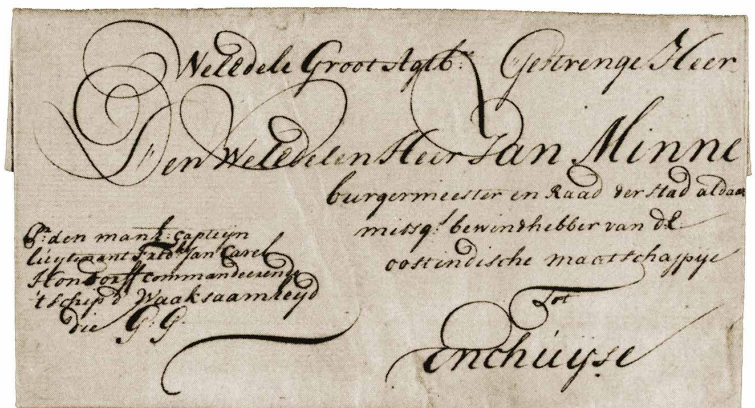 WelEdele Groot Agtb:re Gestrenge Heer
Den WelEdelen Heer Jan Minne
burgermeester en Raad der stad aldaar
missg:s bewindhebber van de
oostindische maatschappije
Tot
Enchuijse
P:r den manh: Capteijn
lieutenant Fred:k Jan Carel
Hondorff Commandeerende
't schip d' Waaksaamheijd
die G: G: